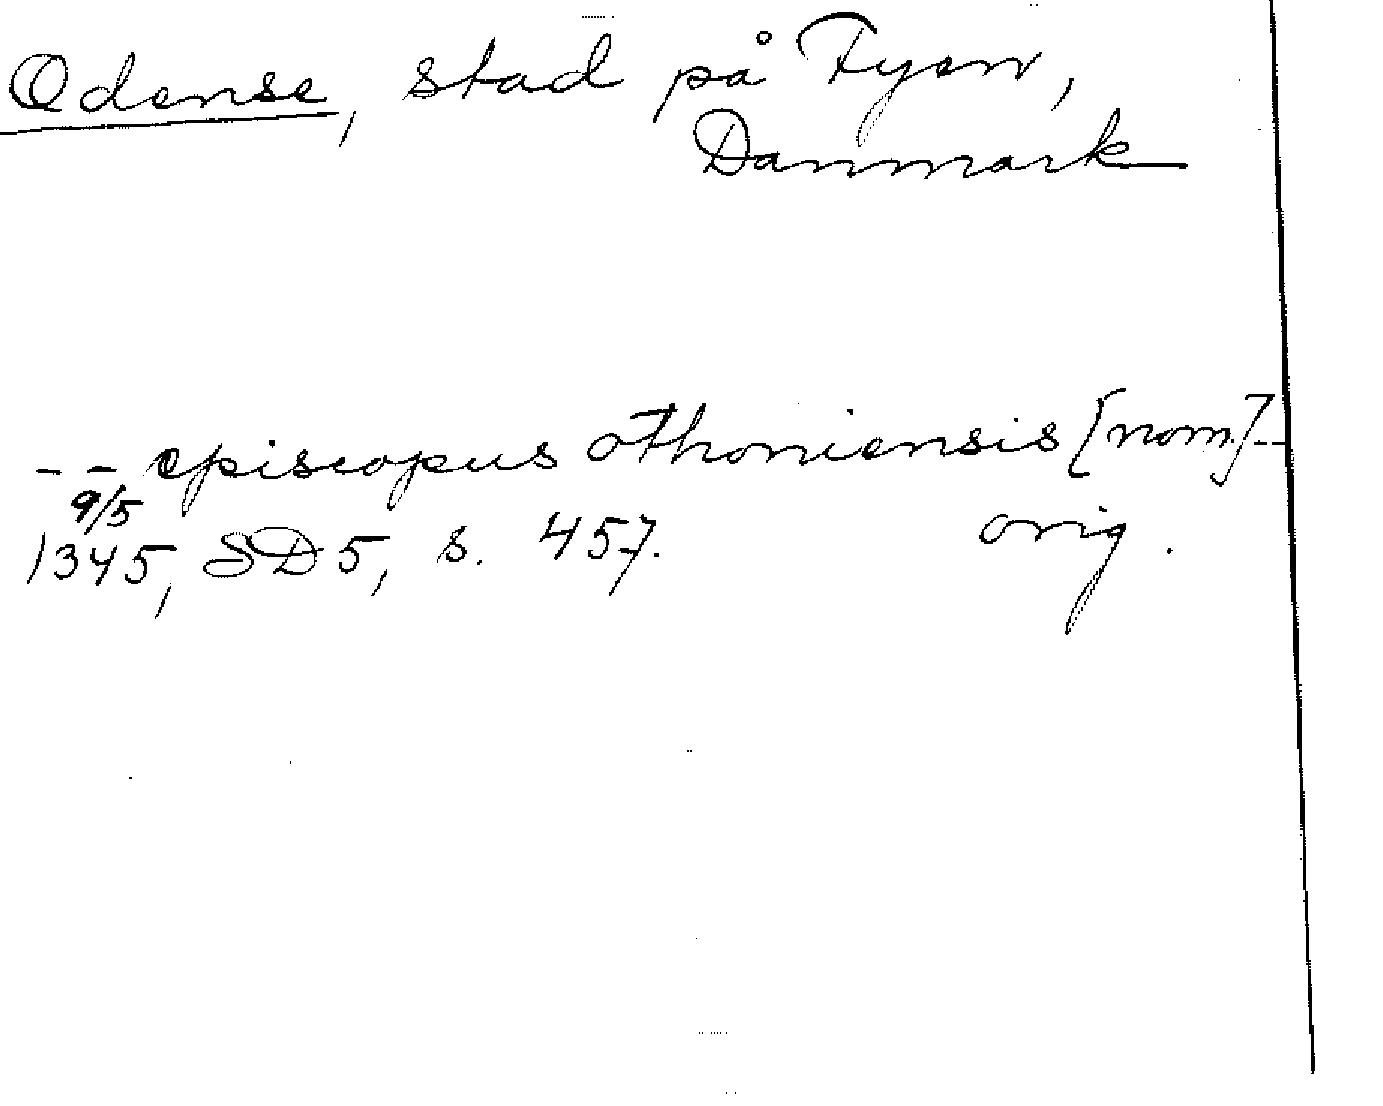 Odense, stad på Fyen,
Danmark
-- episcopus othoniensis [nom.]--
9/5
1345, SD5, s. 457. orig.